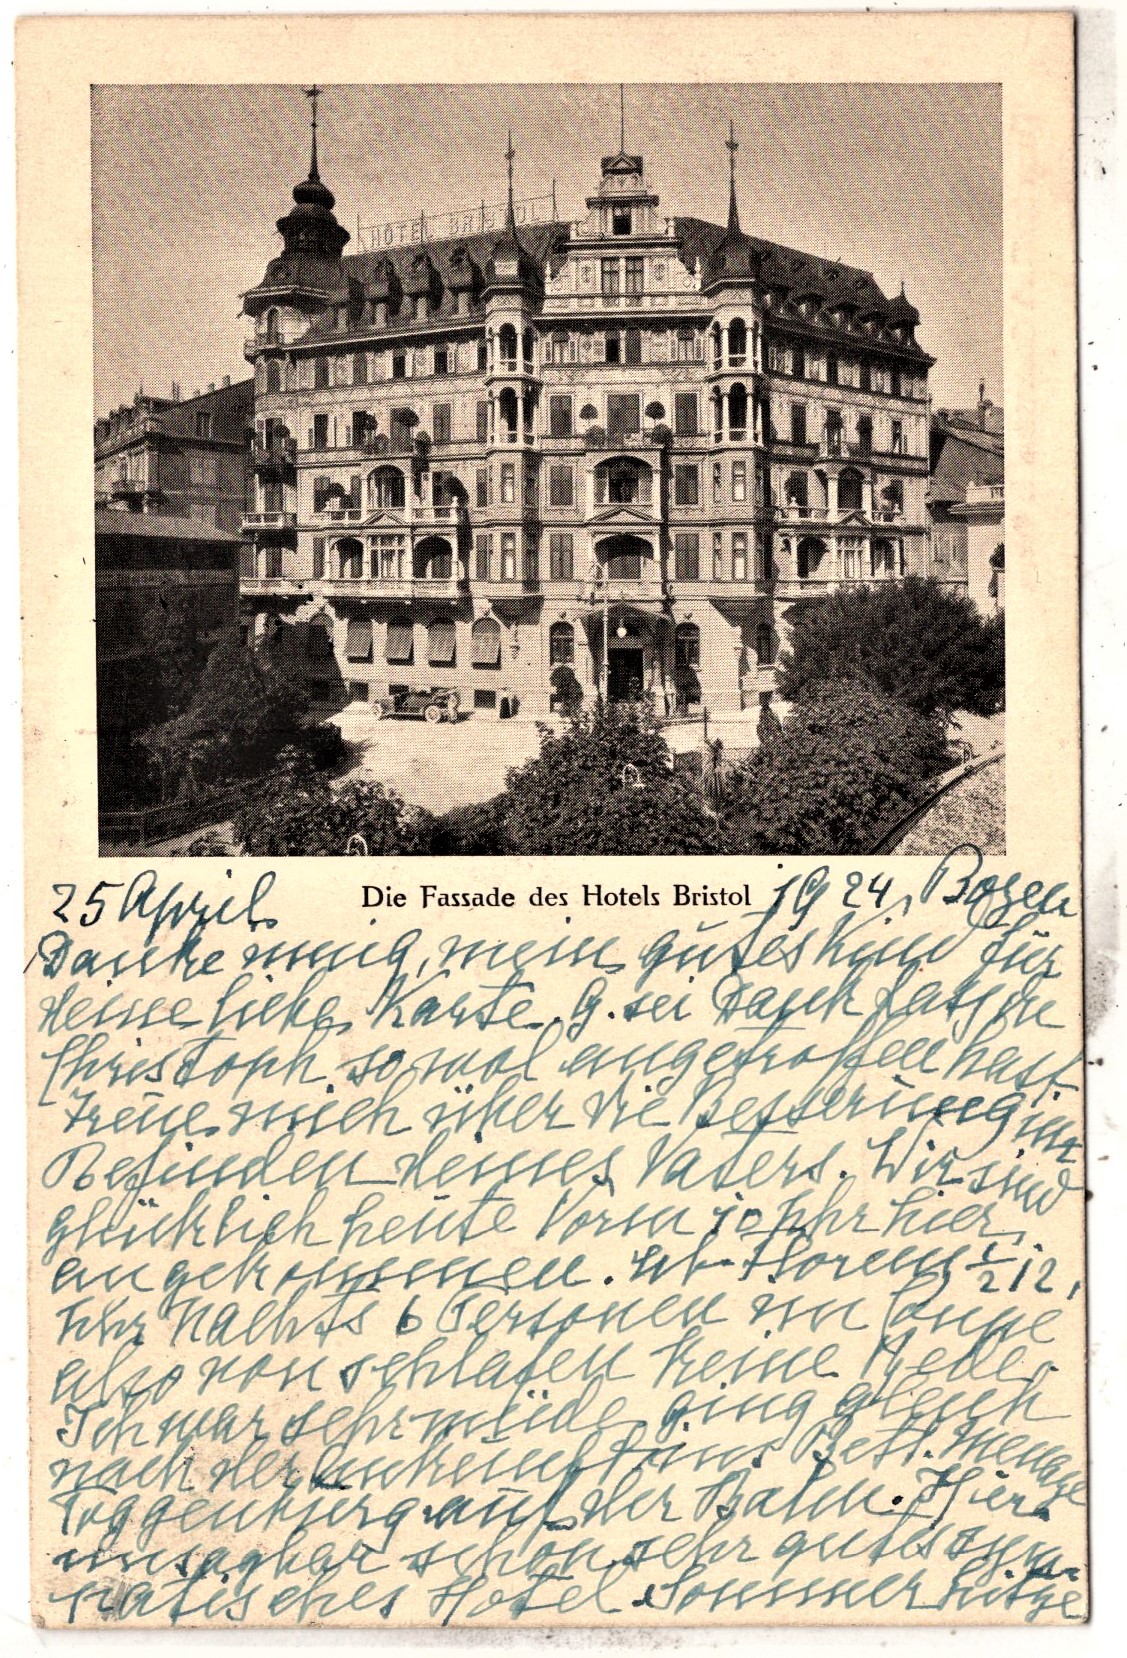 HOTEL BRISTOL
25 April. Die Fassade des Hotels Bristol 1924, Bozen
Danke innig, mein gutes Kind für
deine liebe Karte. G. sei Dank dass du
Christoph so wol angetroffen hast
Freue mich über die Besserung im
Befinden deines Vaters. Wir sind
glücklich heute Vorm 10 Uhr hier
angekommen. ab Florenz ½ 12,
Uhr Nachts 6 Personen im Coupe
also von schlafen keine Rede.
Ich war sehr müde, ging gleich
nach der Ankunft ins Bett.
Toggenburg auf der Bahn. Hier
unsagbar schön, sehr gutes sym-
patisches Hotel. Sommerhitze